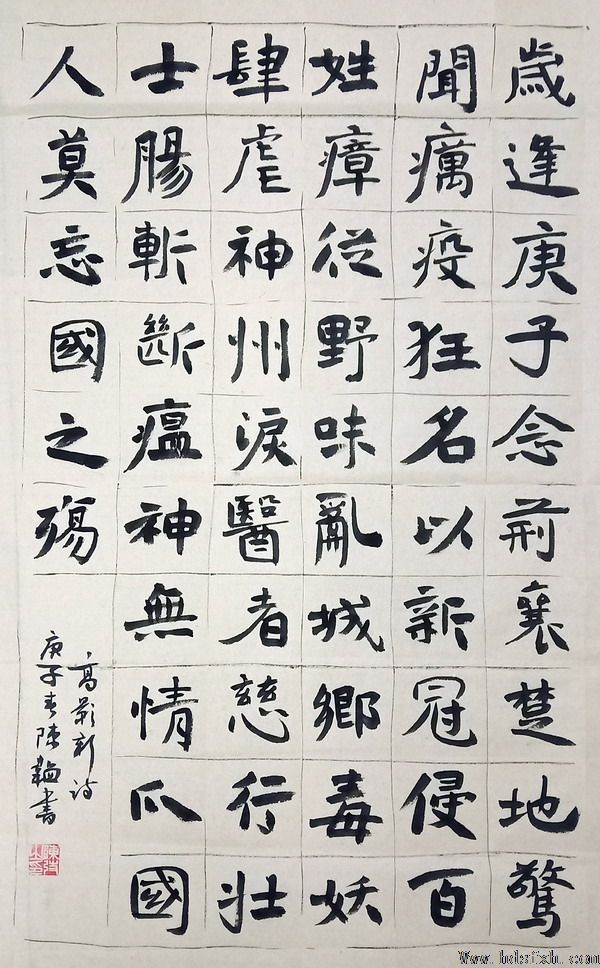 歲逢庚子念荆襄楚地驚
聞癘疫狂名以新冠侵百
姓瘴從野味亂城鄉毒妖
肆虐神州淚醫者慈行壯
士腸斬斷瘟神無情爪國
人莫忘國之殤
高影新詩
庚子春陳書